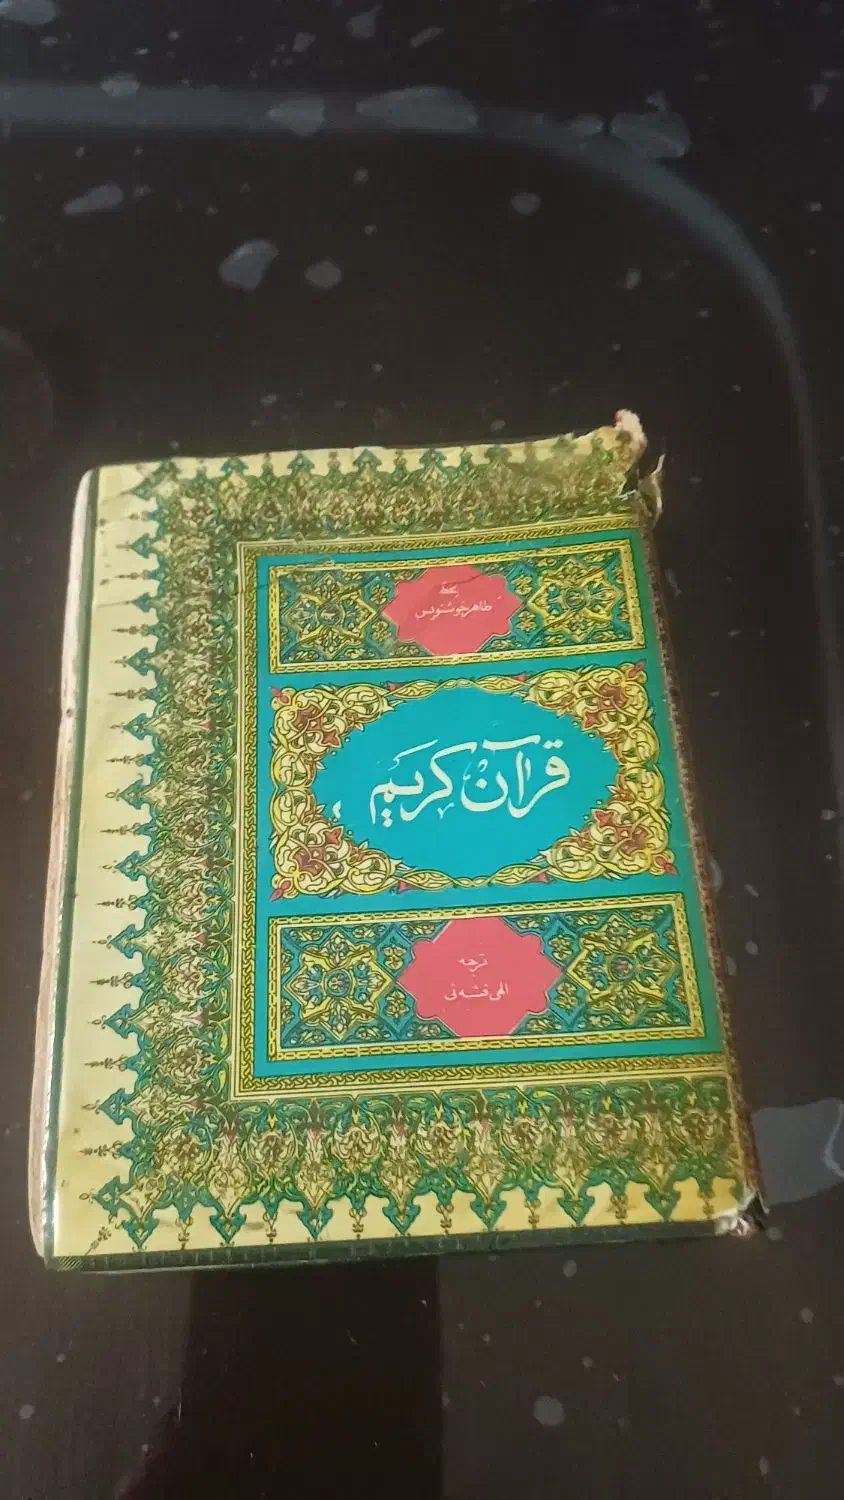 بخط
طاهر خوشنویس
قرآن کریم
ترجمه
الهی قمشه‌ئی